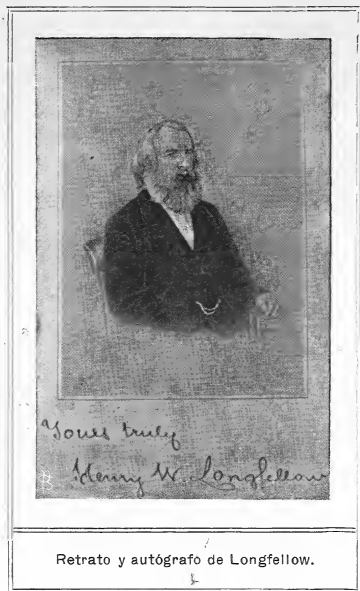 Yours truly
Henry W. Longfellow
Retrato y autógrafo de Longfellow.